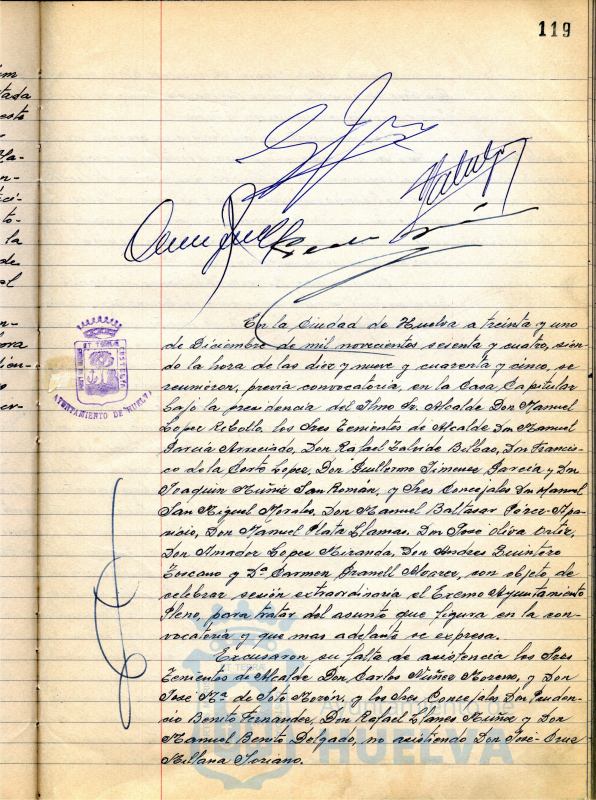 119
En la Ciudad de Huelva a treinta y uno
de Diciembre de mil novecientos sesenta y cuatro, sien-
do la hora de las diez y nueve y cuarenta y cinco, se
reunieron, previa convocatoria, en la Casa Capitular
bajo la presidencia del Ilmo Sr. Alcalde Don Manuel
Lopez Rebollo, los Sres Tenientes de Alcalde Dn Manuel
Garcia Arreciado, Don Rafael Zalvide Bilbao, Don Francis-
co de la Corte Lopez, Don Guillermo Jimenez Garcia y Dn
Joaquin Muñiz San Román, y Sres Concejales Dn Manuel
San Miguel Morales, Don Manuel Baltasar Pérez-Apa-
ricio, Don Manuel Plata Llamas, Don José Oliva Ortiz,
Don Amador Lopez Miranda, Don Andres Quintero
Toscano y Dª Carmen Granell Alvarez, con objeto de
celebrar sesión extraordinaria el Excmo Ayuntamiento
Pleno, para tratar del asunto que figura en la con-
vocatoria y que mas adelante se expresa.
Excusaron su falta de asistencia los Sres
Tenientes de Alcalde Don Carlos Núñez Moreno, y Don
José Mª de Soto Morón, y los Sres Concejales Don Pruden-
cio Benito Fernandez, Don Rafael Llanes Muñoz y Don
Manuel Benito Delgado, no asistiendo Don José-Cruz
Millana Soriano.
AYUNTAMIENTO DE HUELVA
Ayuntamiento de
HUELVA